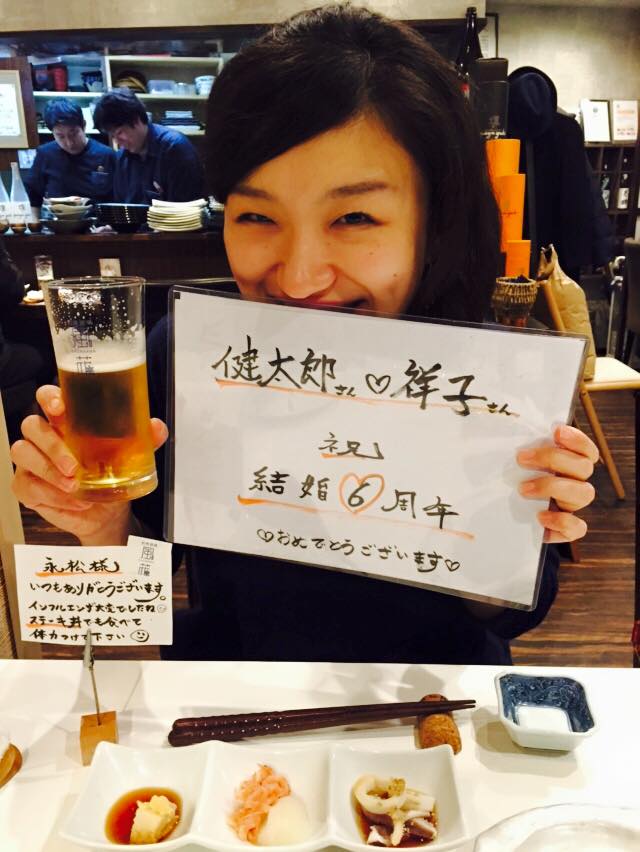 健太郎さん♡祥子さん
祝
結婚♡6周年
♡おめでとうございます♡
永松様
いつもありがとうございます。
インフルエンザ大変でしたね
ステーキ丼でも食べて
体力つけて下さい☺